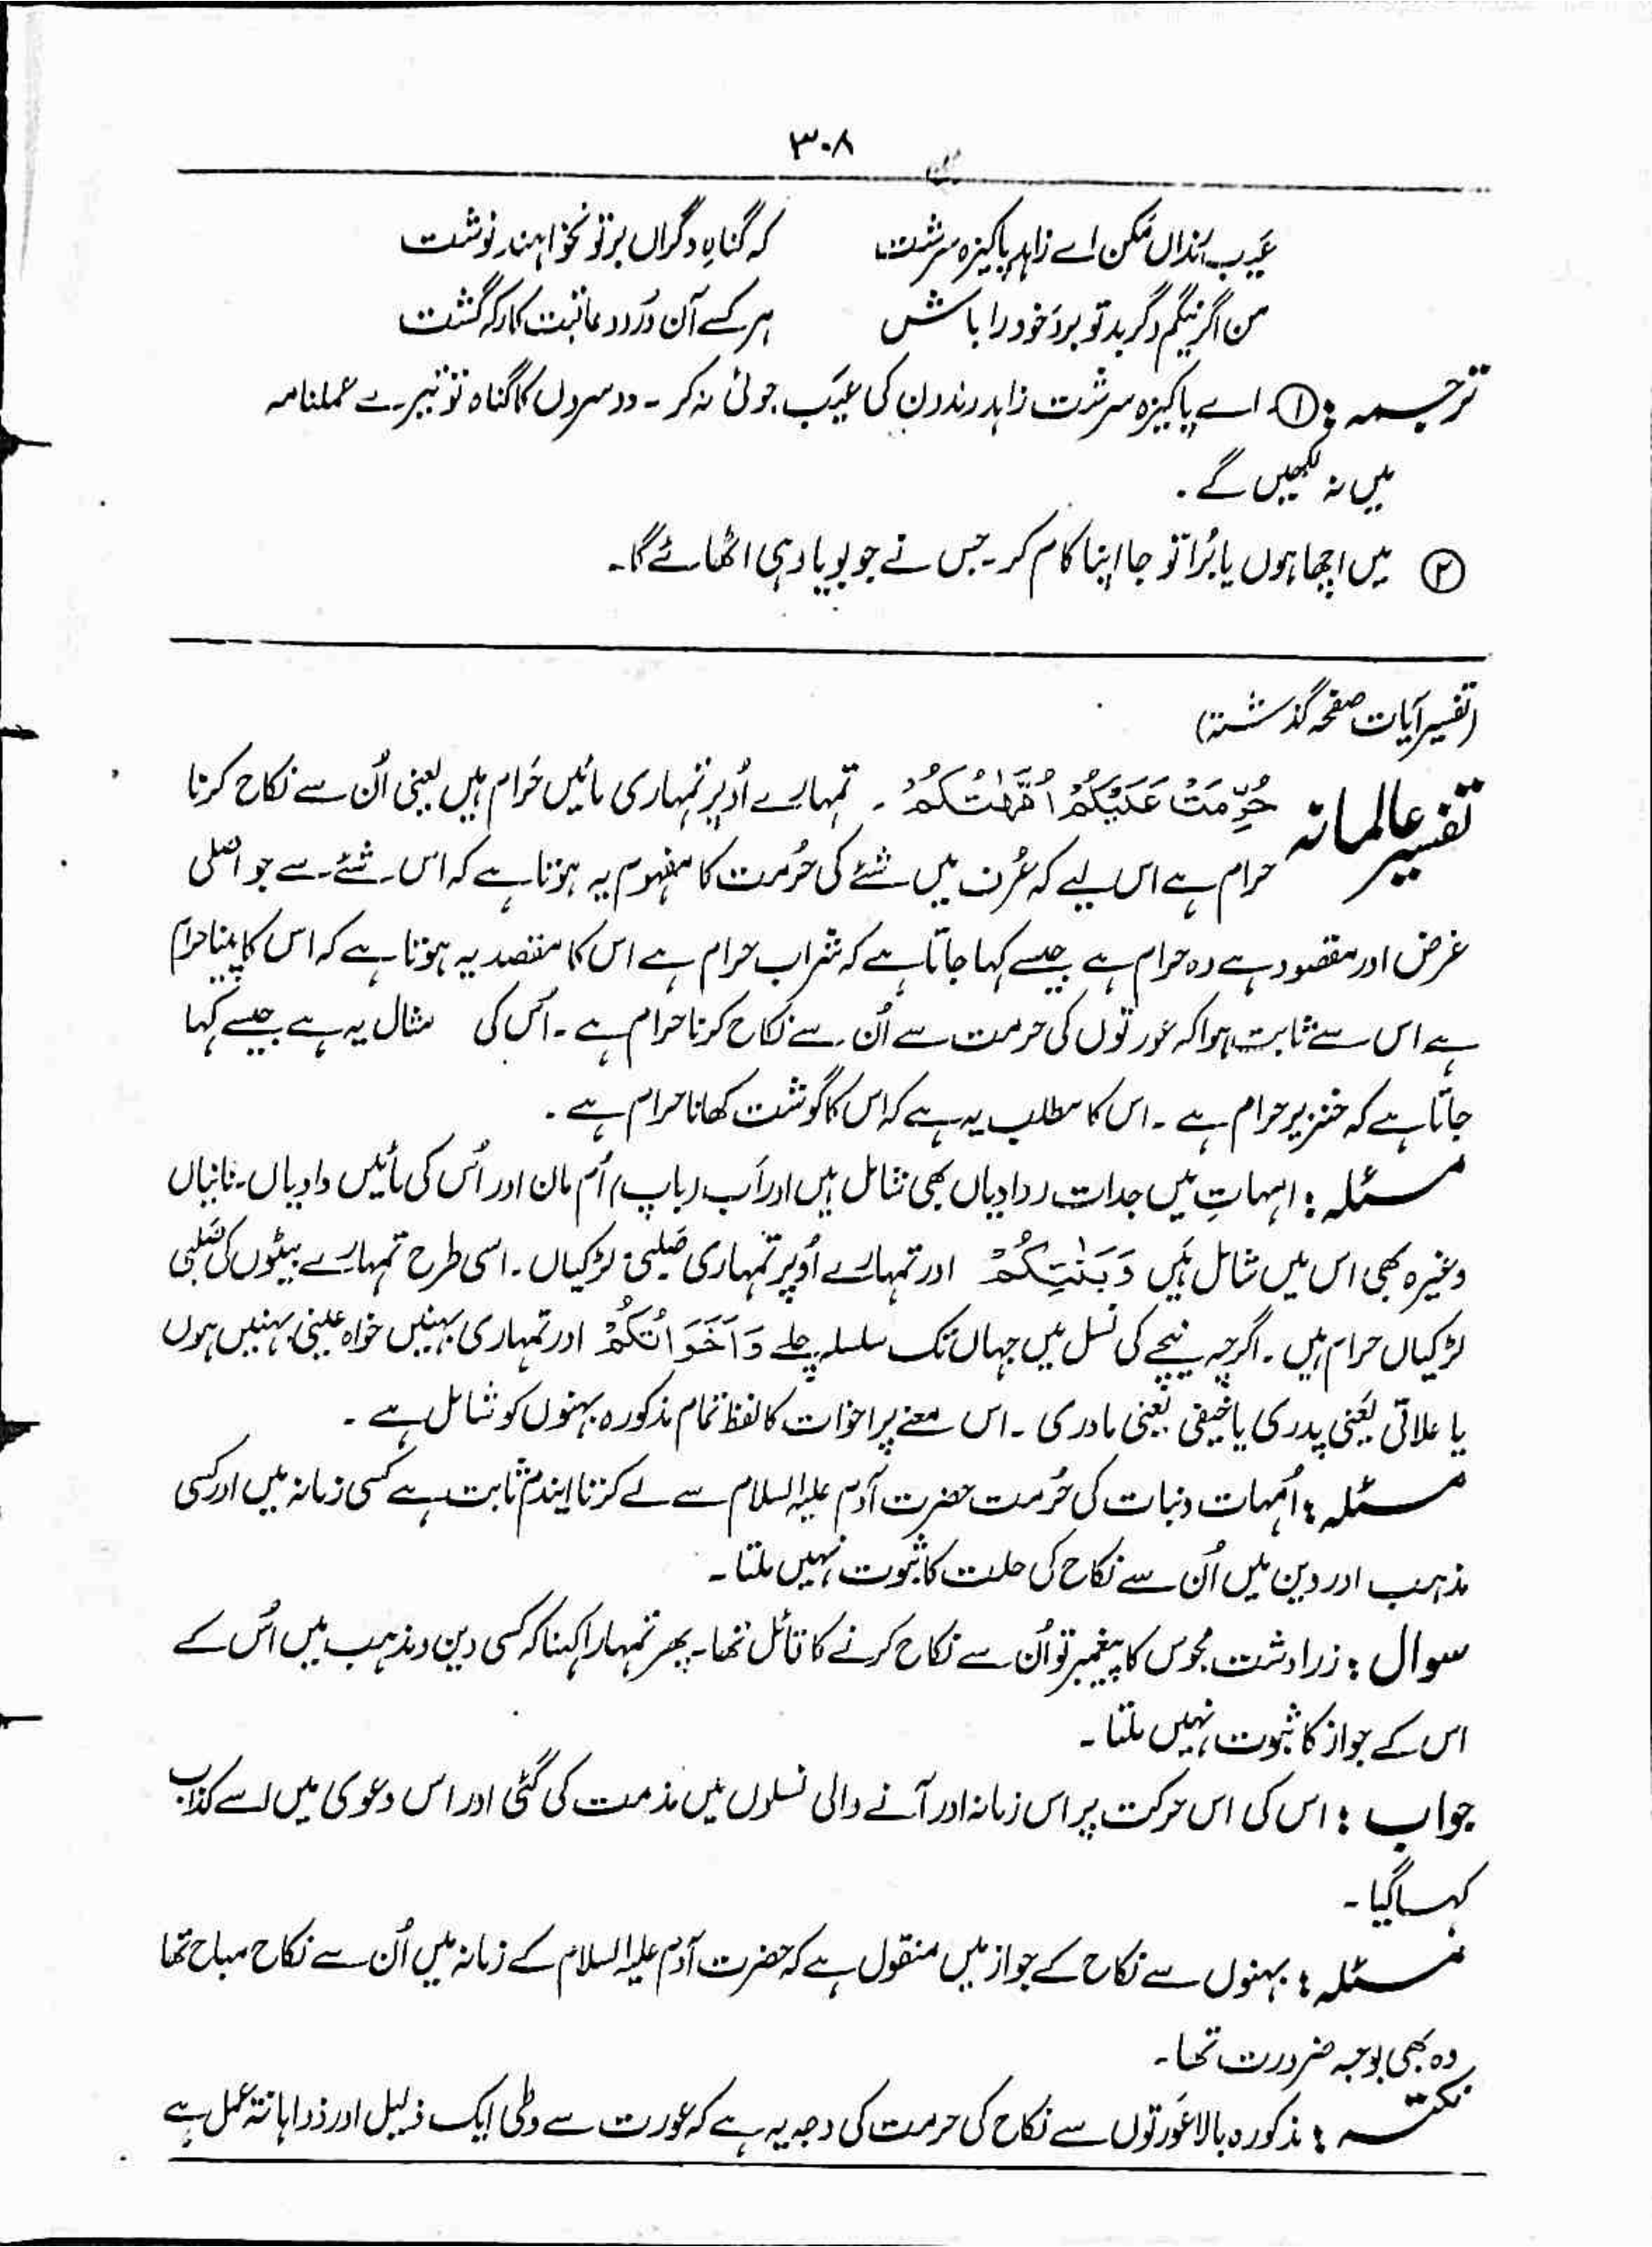 ۳۰۸
عیب رنداں مکن اے زاہد پاکیزہ سرشت    کہ گناہِ دگراں بر تو نخواہند نوشت
من اگر نیکم دگر بد تو برو خود را باش    ہر کسے آن درود عاقبت کار کہ گشت
ترجمہ : ① اے پاکیزہ سرشت زاہد رندون کی عیَب جوئی نہ کر ۔ دوسروں کا گناہ تو تیرے عملنامہ
میں نہ لکھیں گے ۔
② میں اچھا ہوں یا بُرا تو جا اپنا کام کر ۔ جس نے جو بویا وہی اٹھائے گا ۔
(تفسیر آیات صفحہ گذشتہ)
تفسیر عالمانہ حُرِّمَتْ عَلَيْكُمْ اُمَّهٰتُكُمْ ۔ تمہارے اُوپر تمہاری مائیں حَرام ہیں یعنی اُن سے نکاح کرنا
حرام ہے اس لیے کہ عُرف میں شئے کی حُرمت کا مفہوم یہ ہوتا ہے کہ اس شئے سے جو اصلی
غرض اور مقصود ہے وہ حرام ہے جیسے کہا جاتا ہے کہ شراب حرام ہے اس کا مقصد یہ ہوتا ہے کہ اس کا پینا حرام
ہے اس سے ثابت ہوا کہ عورتوں کی حرمت سے اُن سے نکاح کرنا حرام ہے ۔ اُس کی مثال یہ ہے جیسے کہا
جاتا ہے کہ خنزیر حرام ہے ۔ اس کا مطلب یہ ہے کہ اس کا گوشت کھانا حرام ہے ۔
مسئلہ : امہاتِ میں جدات (دادیاں بھی شامل ہیں اور اَب (باپ) اُم مان اور اُس کی مائیں دادیاں ۔ نانیاں
وغیرہ بھی اس میں شامل ہَیں وَبَنٰتُكُمْ اور تمہارے اُوپر تمہاری صُلبی لڑکیاں ۔ اسی طرح تمہارے بیٹوں کی صُلبی
لڑکیاں حرام ہیں ۔ اگرچہ نیچے کی نسل میں جہاں تک سلسلہ چلے وَاَخَوَاتُكُمْ اور تمہاری بہنیں خواہ عینی بہنیں ہوں
یا علاتی یعَنی پدری یا خیفی یعنی مادری ۔ اس معنے پر اخوات کا لفظ تمام مذکورہ بہنوں کو شامل ہے ۔
مسئلہ : اُمہات و بنات کی حُرمت حضرت آدم علیہ السلام سے لے کر تا ایندم ثابت ہے کسی زمانہ میں اور کسی
مذہب اور دین میں اُن سے نکاح کی حلت کا ثبوت نہیں ملتا ۔
سوال : زرادشت مجوس کا پیغمبر تو اُن سے نکاح کرنے کا قائل تھا ۔ پھر تمہارا کہنا کہ کسی دین و مذہب میں اُس کے
اس کے جواز کا ثبوت نہیں ملتا ۔
جواب : اس کی اس حرکت پر اس زمانہ اور آنے والی نسلوں میں مذمت کی گئی اور اس دعوی میں اسے کذاب
کہا گیا ۔
مسئلہ : بہنوں سے نکاح کے جواز میں منقول ہے کہ حضرت آدم علیہ السلام کے زمانہ میں اُن سے نکاح مباح تھا
وہ بھی بوجہ ضرورت تھا ۔
نکتہ : مذکورہ بالا عَورتوں سے نکاح کی حرمت کی وجہ یہ ہے کہ عورت سے وطی ایک ذلیل اور ذرا ہانتہ عمل ہے